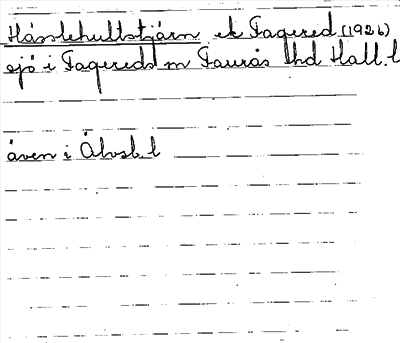 Hässlehultstjärn ek Fagered (1926)
sjö i Fagereds sn Faurås hd Hall. l
även i Älvsb. l